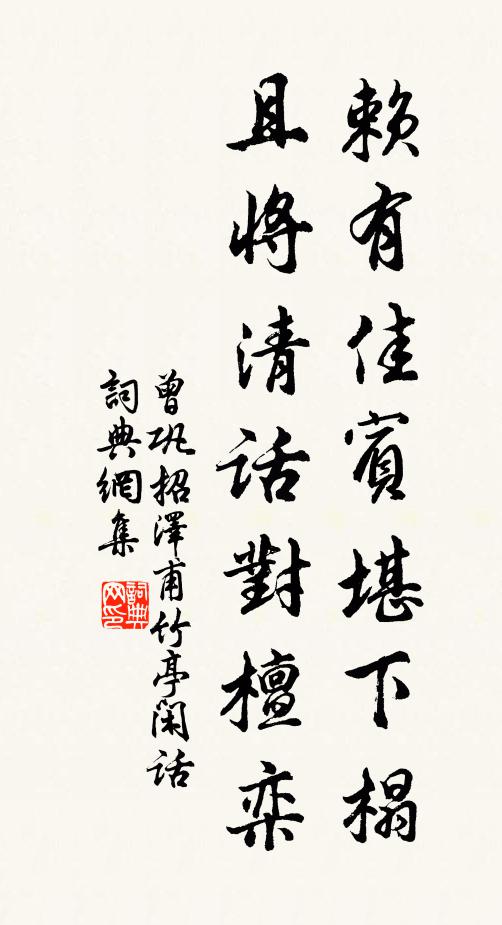 賴有佳賓堪下榻
且將清話對檀奕
曾巩招澤甫竹亭閑話
詞典網集
詞典网印